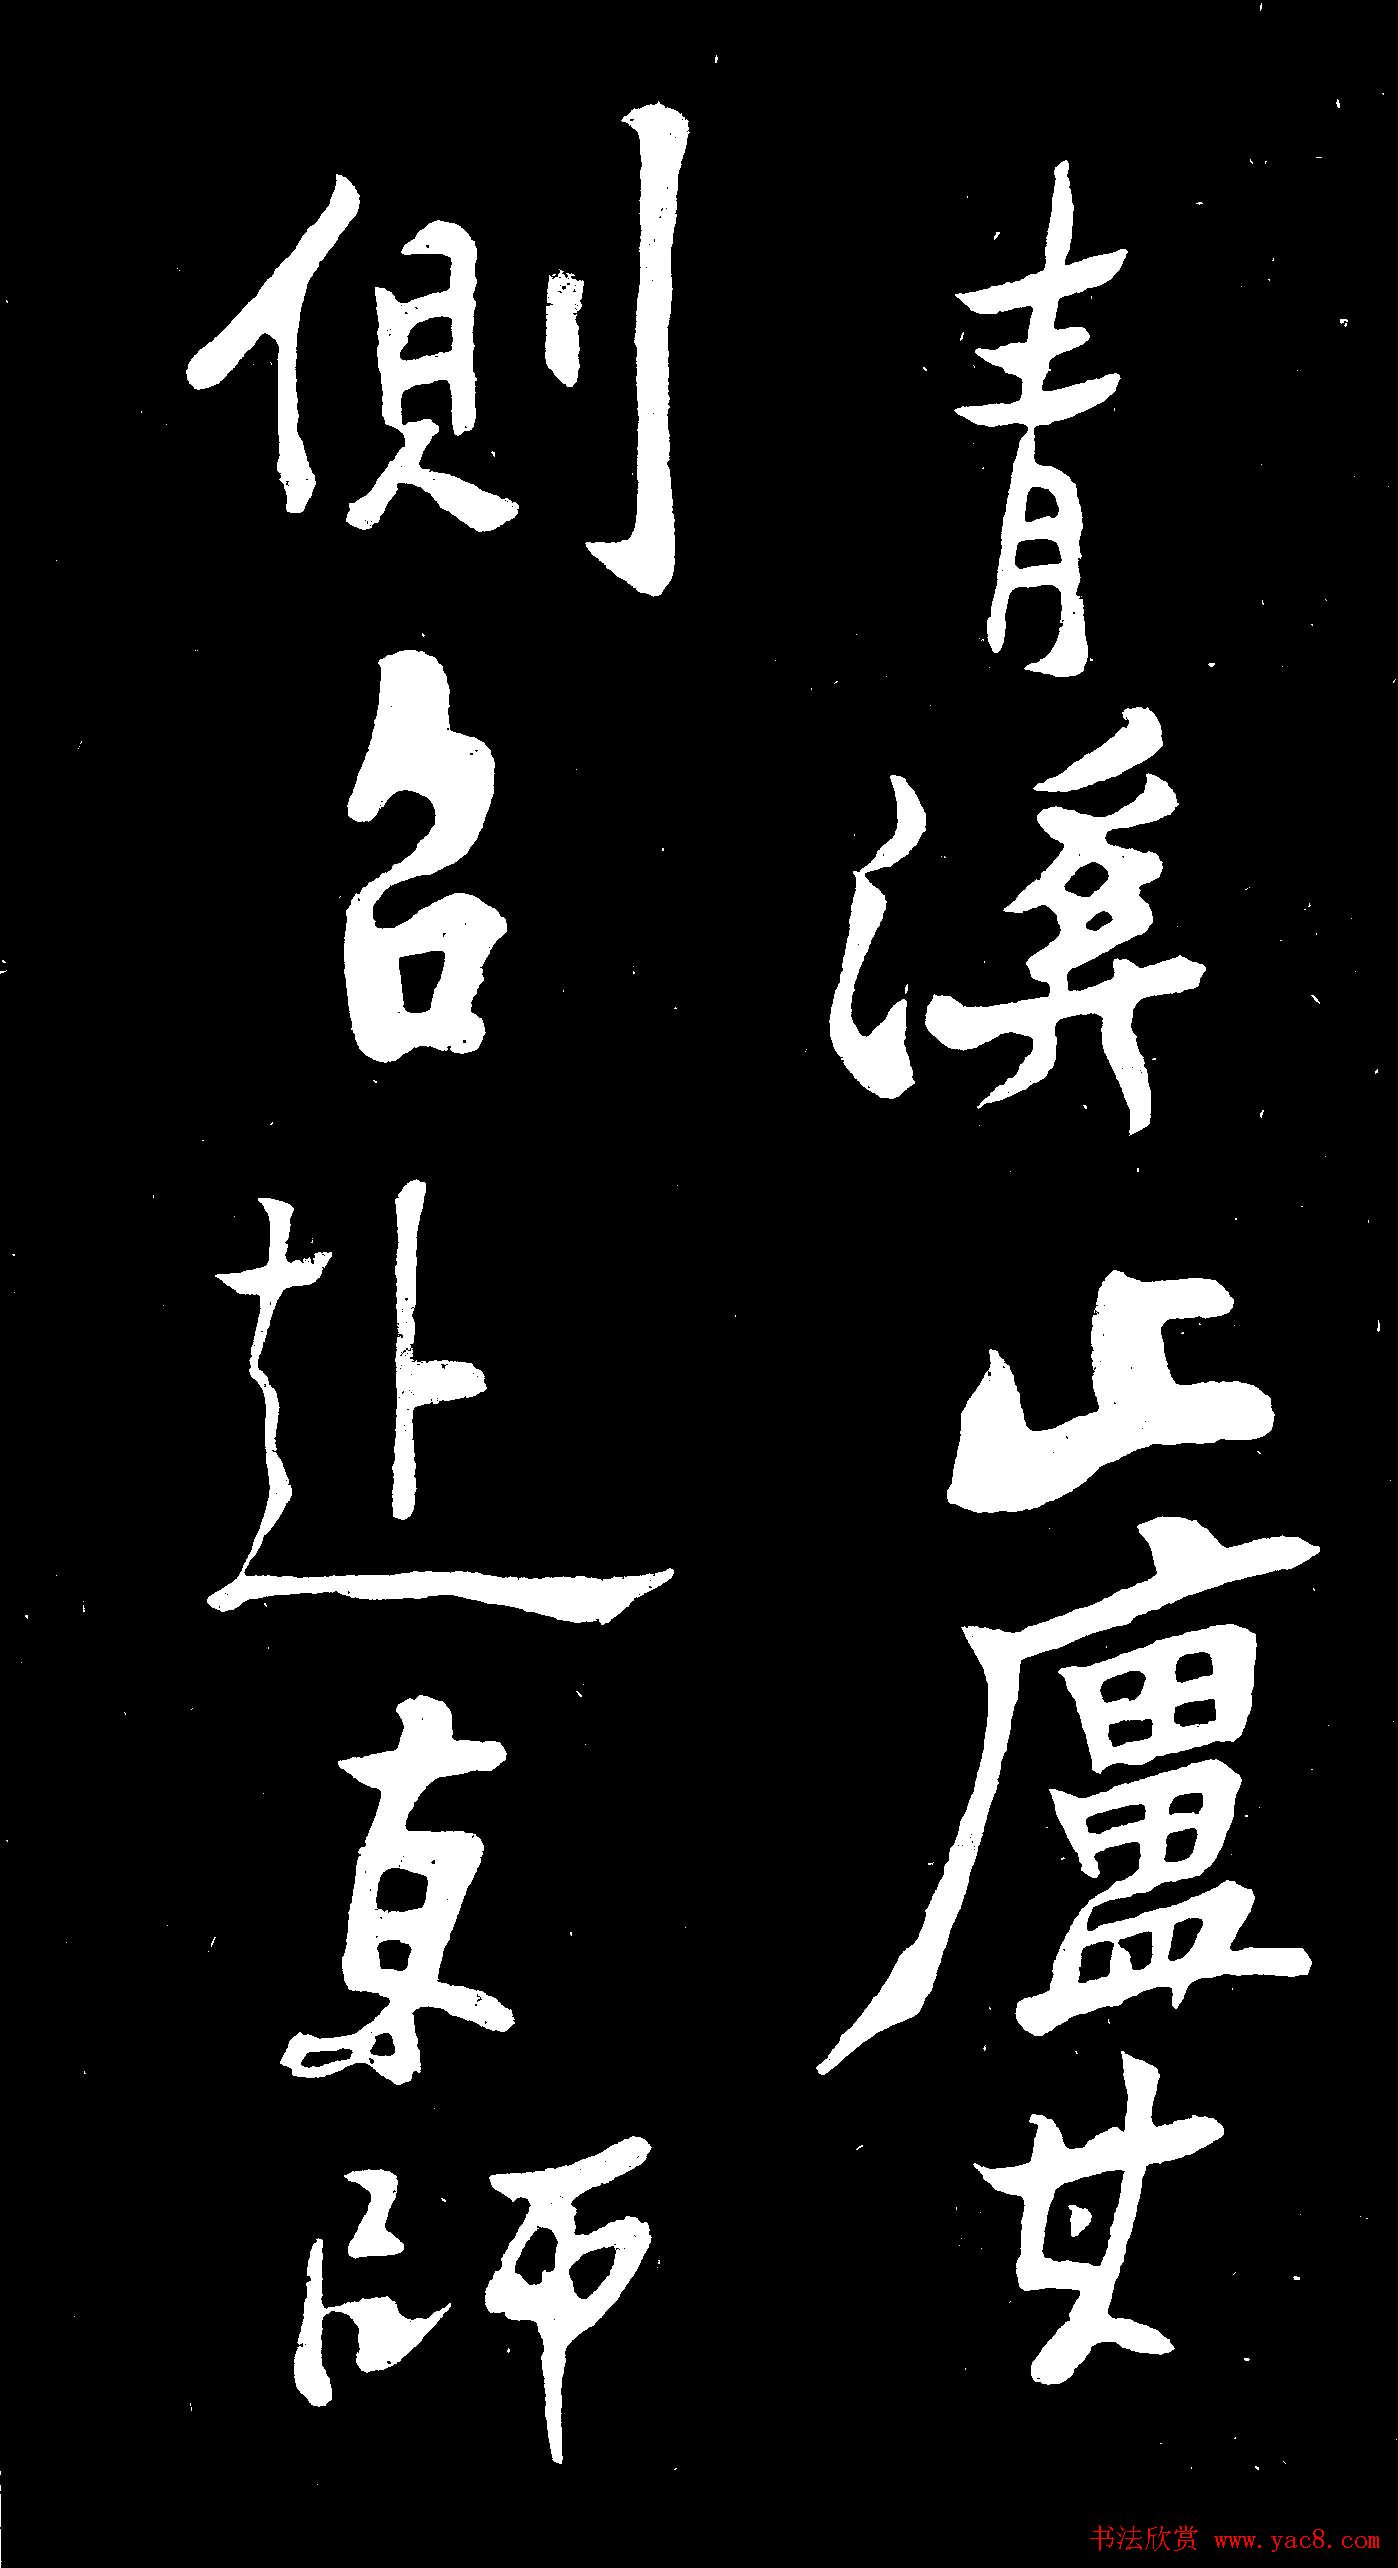 青溪止廬其
側召赴京師
书法欣赏 www.yac8.com